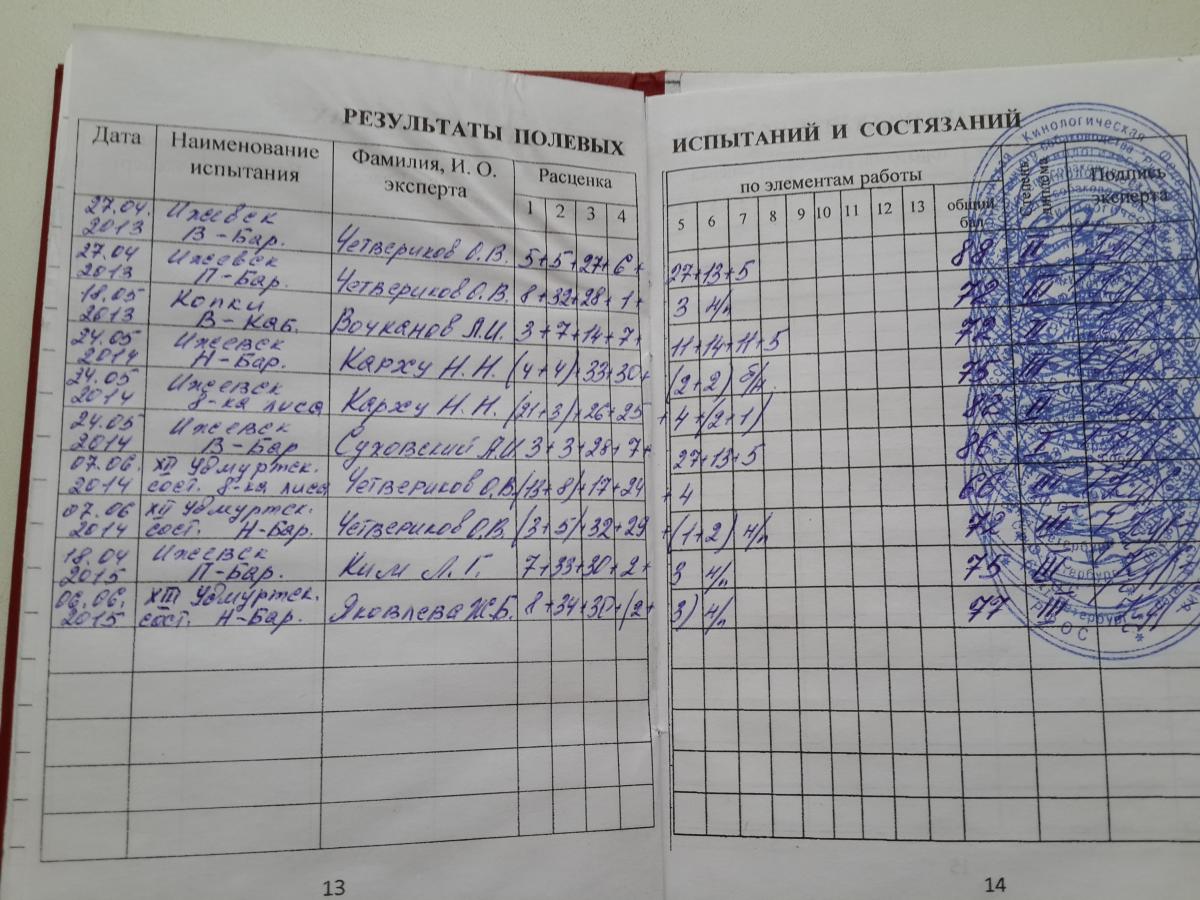 РЕЗУЛЬТАТЫ ПОЛЕВЫХ ИСПЫТАНИЙ И СОСТЯЗАНИЙ
Дата Наименование испытания Фамилия, И. О. эксперта Расценка по элементам работы общий бал Степень диплома Подпись эксперта
1 2 3 4 5 6 7 8 9 10 11 12 13
27.04. 2013 Ижевск В-Бар. Четвериков О.В. 5+5+27+6+ 27+13+5 88 II
27.04 2013 Ижевск П-Бар. Четвериков О.В. 8+32+28+1+ 3 ч/п 72 III
18.05 2013 Копки В-Каб. Вочканов Л.И. 3+7+14+7+ 11+14+11+5 72 II
24.05 2014 Ижевск Н-Бар. Карху Н.Н. (4+4)+33+30+ (2+2) б/н. 75 III
24.05 2014 Ижевск б-ка лиса Карху Н.Н. (21+3)+26+25 +4+(2+1) 82 II
24.05 2014 Ижевск В-Бар Суховский А.И. 3+3+28+7+ 27+13+5 86 I
07.06. 2014 XII Удмуртск. сост. б-ка лиса Четвериков О.В. (13+8)+17+24 +4 66 III
07.06 2014 XII Удмуртск. сост. Н-Бар. Четвериков О.В. (3+5)+32+29 +(1+2) ч/п 72 III
18.04 2015 Ижевск П-Бар. Ким Л.Г. 7+33+30+2+ 3 ч/п 75 III
06.06. 2015 XIII Удмуртск. сост. Н-Бар. Яковлева Ж.Б. 8+34+30+(2+ 3) ч/п 77 III
Кинологическая
РФОС
13
14